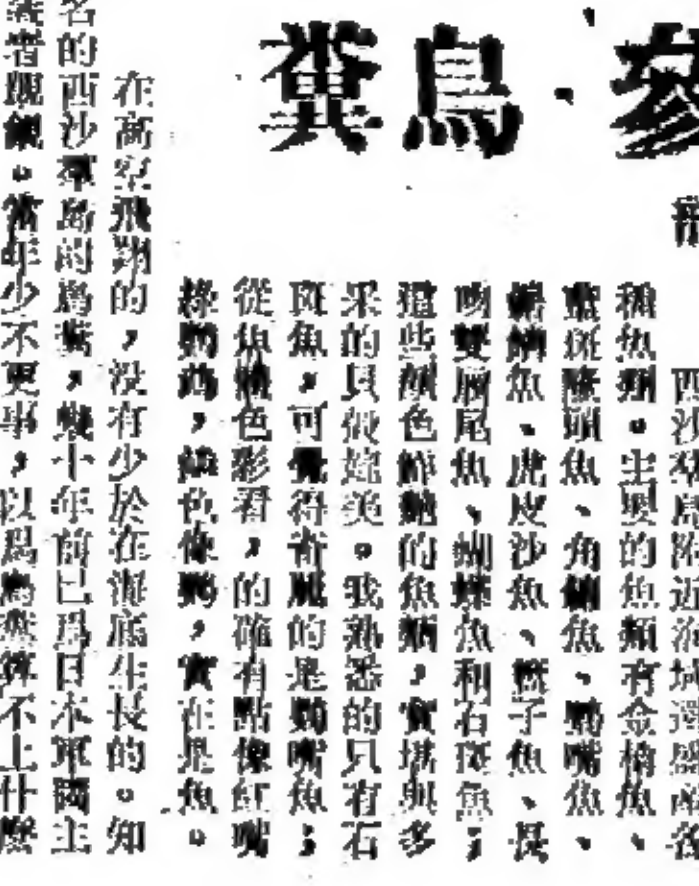 參·鳥糞
西沙羣島附近海域還盛產各
種魚類。主要的魚類有金槍魚、
藍斑頭魚、角魚、鸚嘴魚、
魚、虎皮沙魚、子魚、長
吻雙尾魚、蝴蝶魚和石斑魚；
這些顏色鮮艷的魚類，實堪與多
采的貝殼媲美。我熟悉的只有石
斑魚，可覺得奇的是鸚嘴魚；
從魚體色彩看，的確有點像紅嘴
綠鸚鵡，色像鸚，實在是魚。
在高空飛翔的，沒有少於在海底生長的。知
名的西沙羣島的鳥糞，幾十年前已爲日本軍國主
義者覬覦。當年少不更事，以爲鳥糞算不上什麼